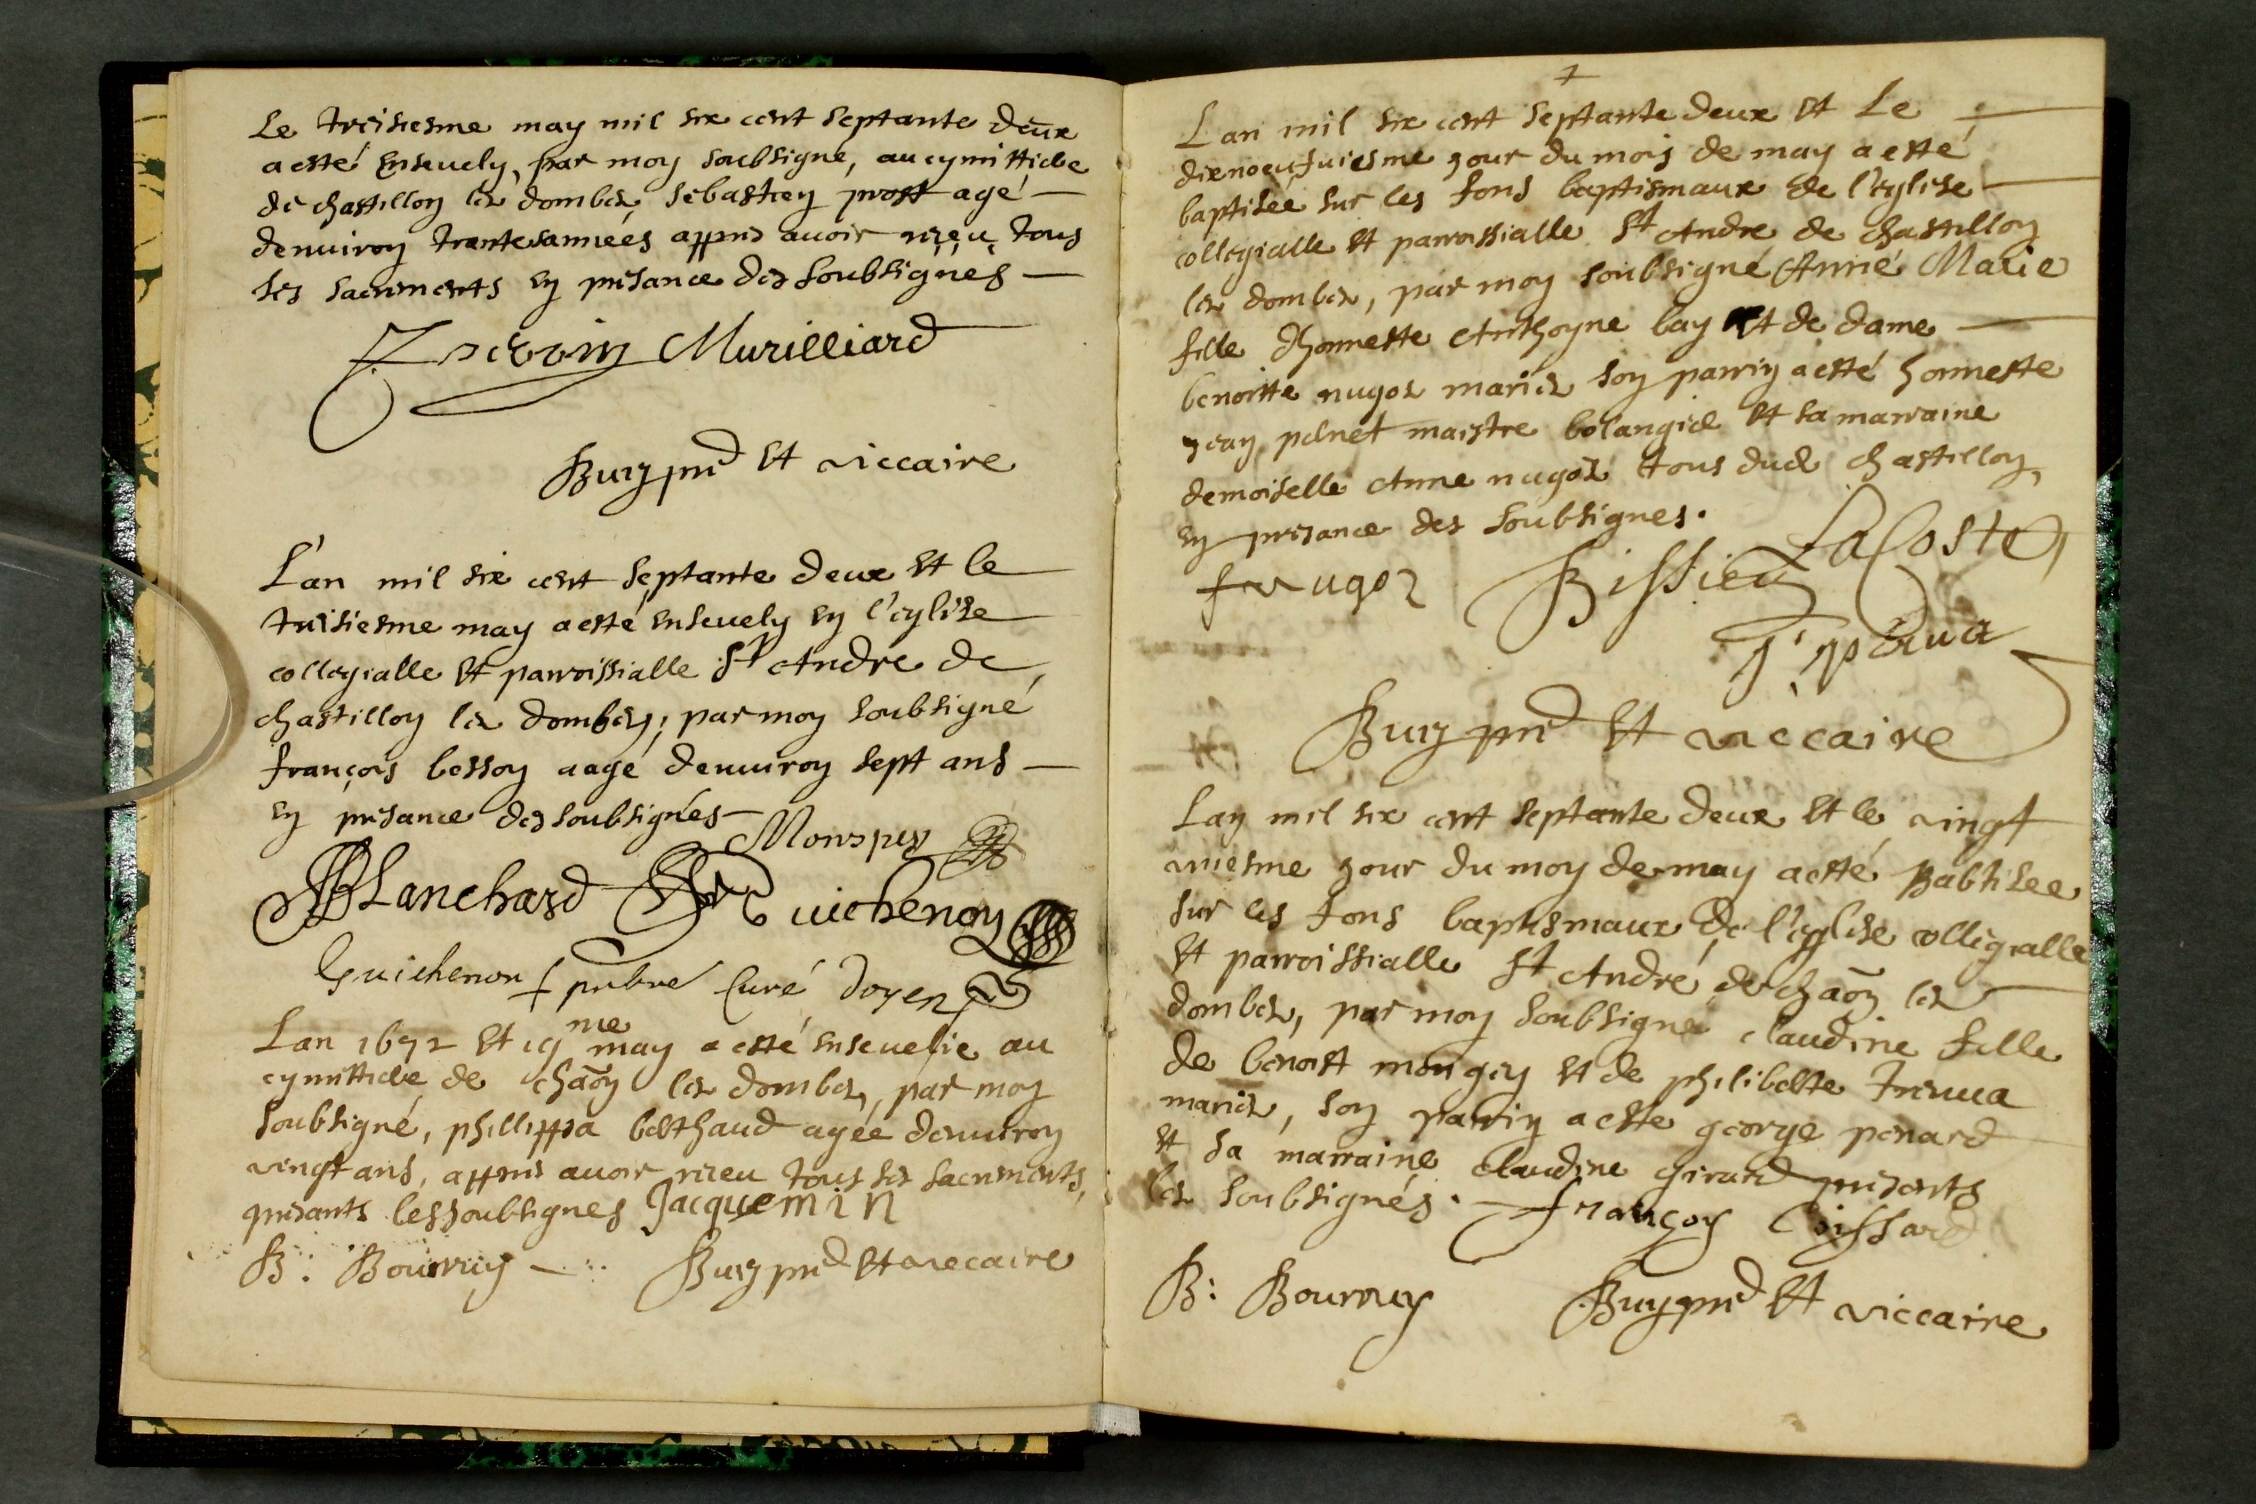 Le treisiesme may mil six cent septante deux
a esté ensevely, par moy soubsigné, au cymittiere
de chastillon les dombes, sebastien prost agé
denviron trante années appres avoir reçeu tous
ses sacrements en presance des soubsignes
Murilliard
Buyz pre et viccaire
L'an mil six cent septante deux et le
treisiesme may a esté ensevely en l'eglise
collegialle et parroissialle St Andre de
chastillon les dombes, par moy soubsigné
françois besson aagé denviron sept ans
en presance des soubsignés
Monspey
Blanchard Guichenon
Guichenon pnbre Curé doyen
Lan 1672 et 19me may a esté ensevelie au
cymittiere de chaon les dombes, par moy
soubsigné, phillippa berthaud agée denviron
vingt ans, appres avoir reçeu tous ses sacrements,
presants les soubsignes Jacquemin
B: Bourruy Buyz pre et viccaire
7
Lan mil six cent septante deux et Le
dixnoeufviesme jour du mois de may a esté
baptisée sur les fons baptismaux de l'eglise
collegialle et parroissialle St Andre de chastillon
les dombes, par moy soubsigné Anne Marie
fille dhonneste Anthoyne bay et de dame
benoitte nugoz mariez son parrin a esté honneste
jean perret maistre bolangier et sa marraine
demoiselle Anne nugoz tous dud chastillon,
en presance des soubsignes.
LaCoste
f nugoz Bissieu
Buyz pre et viccaire
Lan mil six cent septante deux et le vingt
uniesme jour du moy de may a esté Babtisee
sur les fons baptismaux de l'eglise collegialle
et parroissialle St André de chaon les
dombes, par moy soubsigne claudine fille
de benoist mongey et de philiberte
mariez, son parrin a este george penard
et sa marraine claudine girard presants
les soubsignés. françoys
B: Bourruy Buyz pre et viccaire